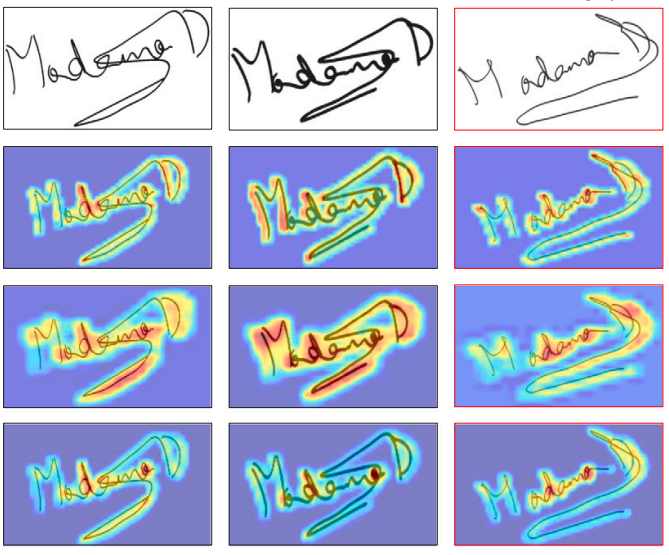 Madamo D
Madamo D
Madamo D
Madamo D
Madamo D
Madamo D
Madamo D
Madamo D
Madamo D
Madamo D
Madamo D
Madamo D